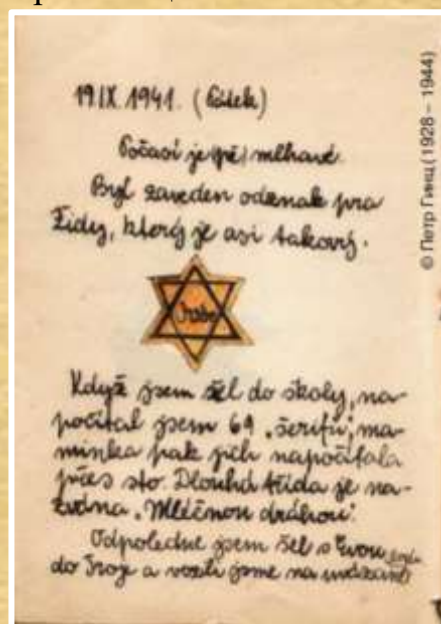 19.IX.1941. (Pátek)
Počasí je mlhavé.
Byl zaveden odznak pro
Židy, který je asi takový.
Když jsem šel do školy, na-
počítal jsem 69 „šerifů“, ma-
minka pak jich napočítala
přes sto. Dlouhá třída je na-
zvána „Mléčnou dráhou“.
Odpoledne jsem šel s Evou
do Troje a vozili jsme na
© Петр Гинц (1928 – 1944)